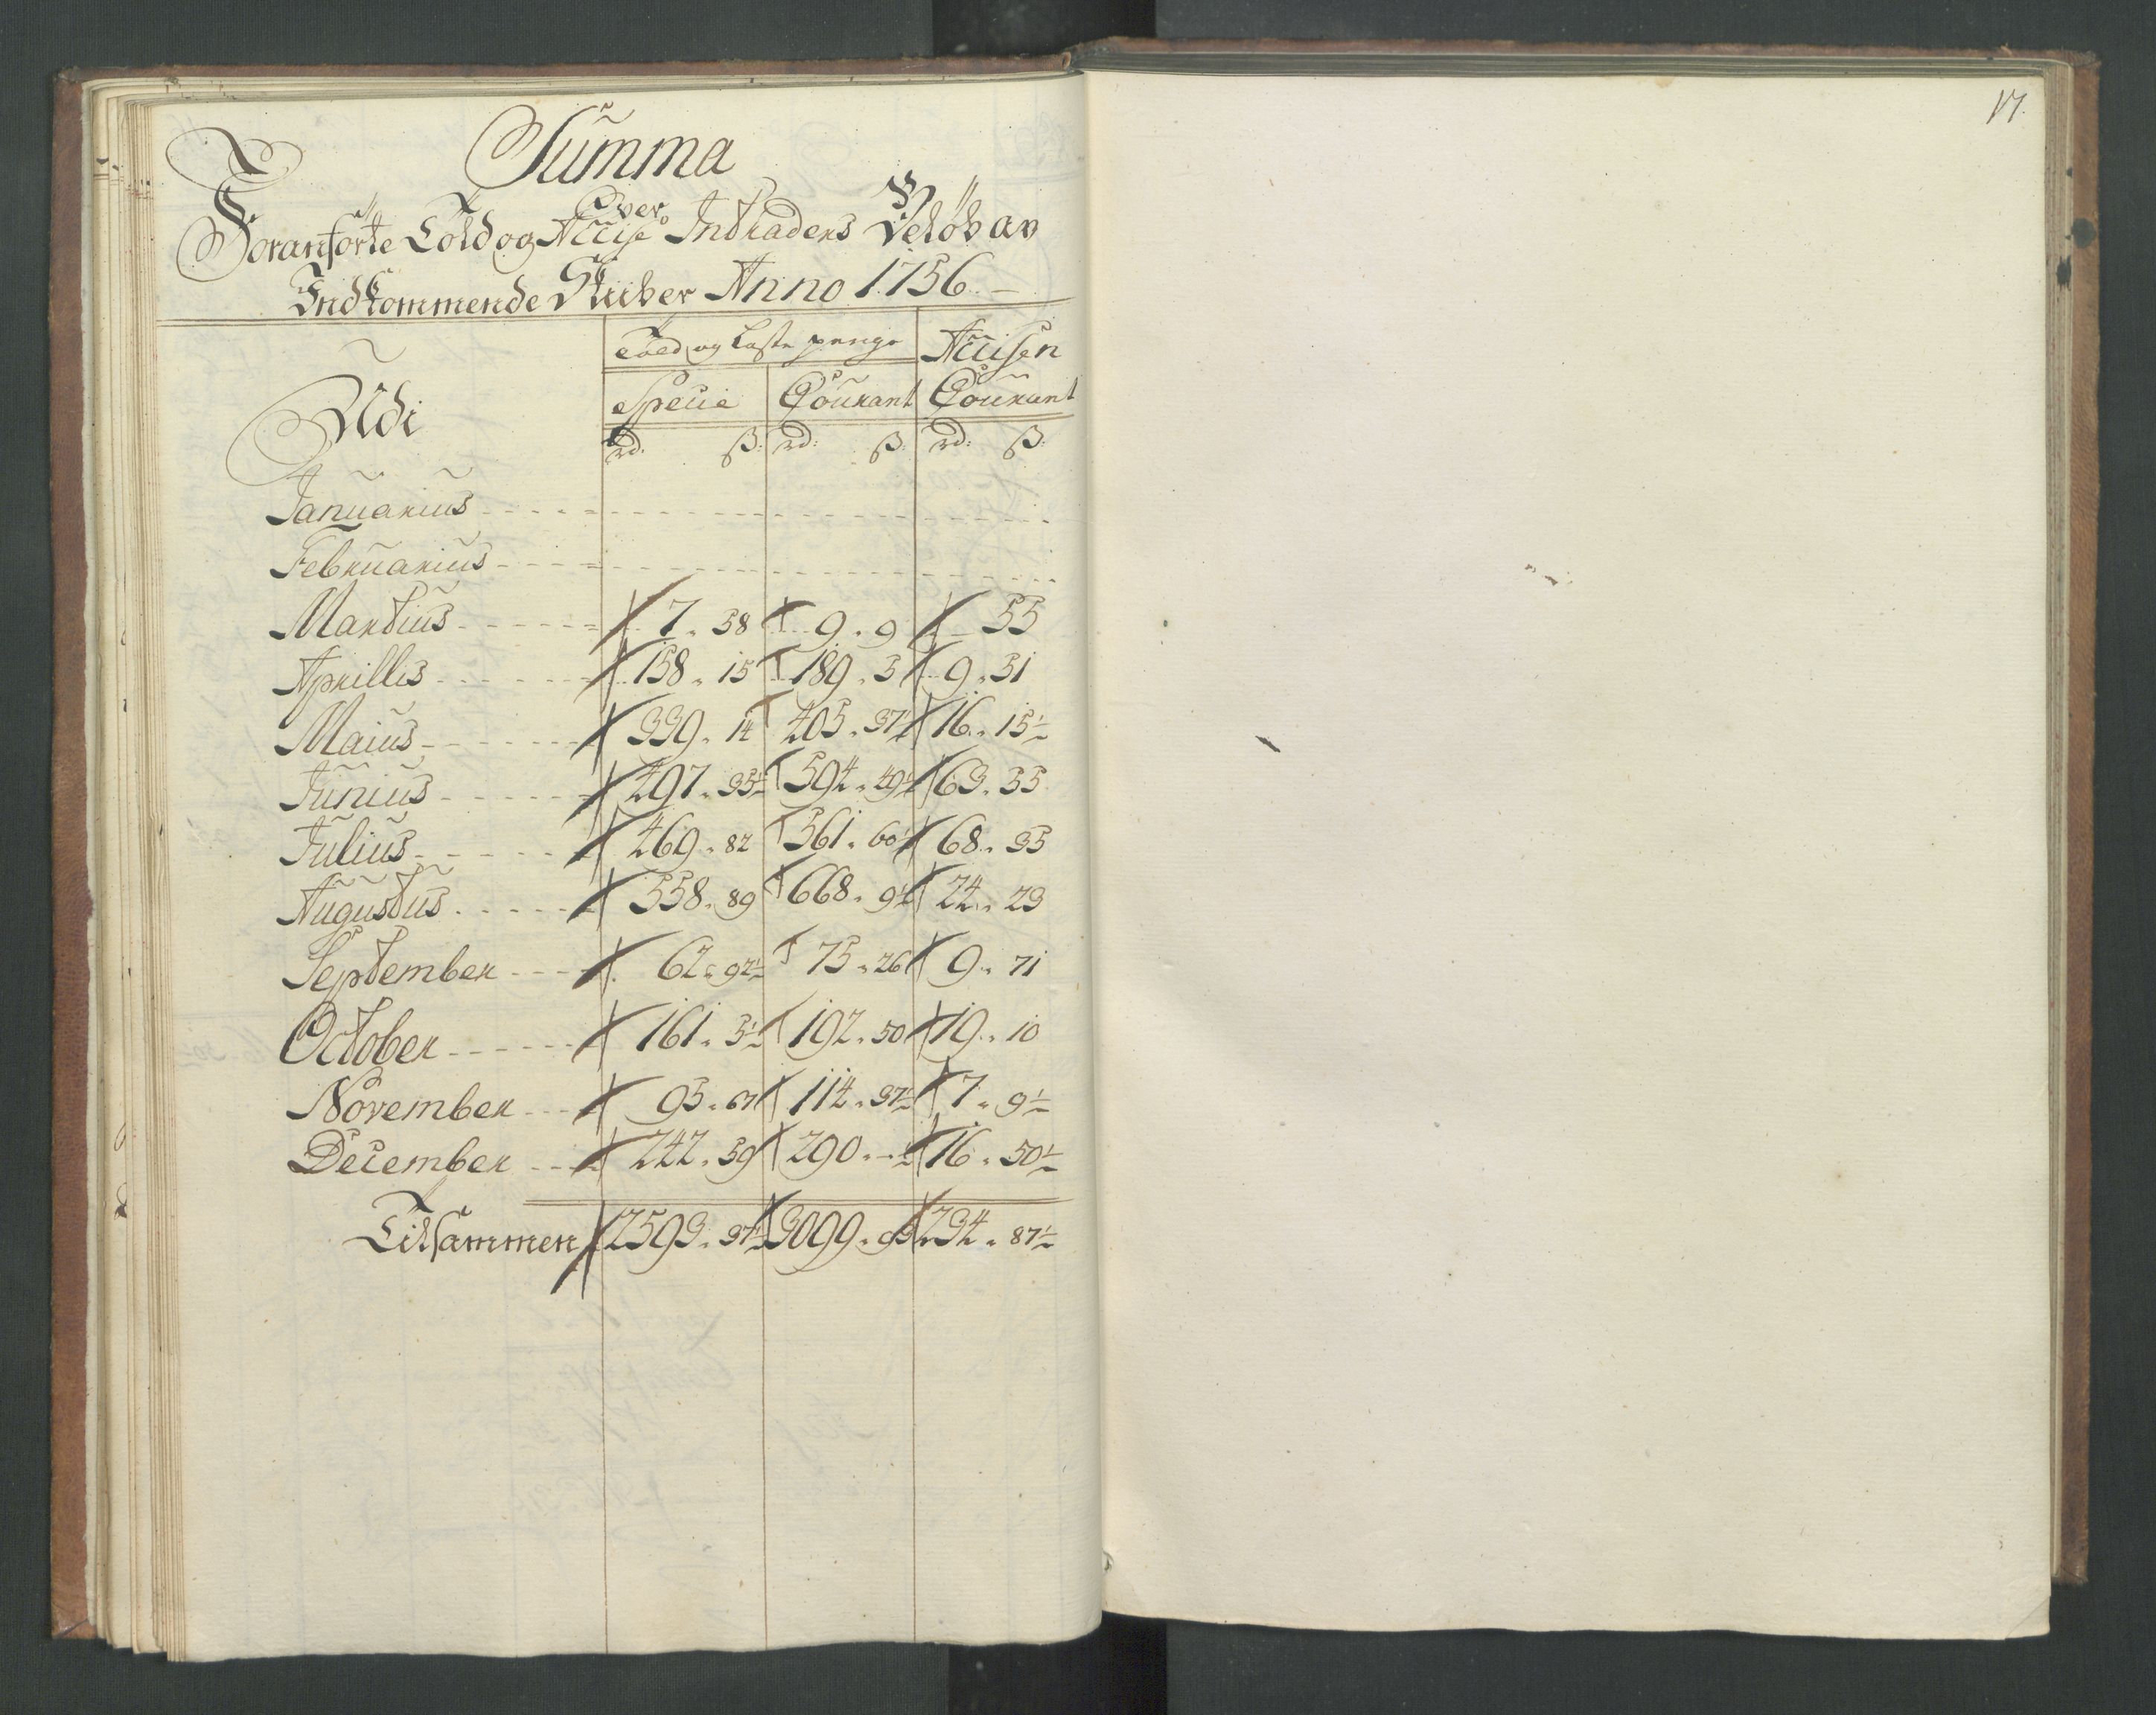 Summa
Over
Foranførte Told og Accise Indtradens Beløb av
Indkommende Skiber Anno 1756
Told og Laste penge Accisen
Udi Specie Courant Courant
rd. ß: rd: ß: rd: ß:
Januarius
Februarius
Martius 7 " 58 9 " 9 55
Aprillis 158 " 15 189 " 5 9 " 31
Maius 339 " 14 405 " 37½ 16 " 15½
Junius 497 " 35½ 594 " 49½ 63 " 55
Julius 469 " 82 561 " 60½ 68 " 35
Augustus 558 " 89 668 " 9½ 24 " 23
September 62 " 92½ 75 " 26 9 " 71
October 161 " 5½ 192 " 50 19 " 10
November 95 " 67 114 " 37½ 7 " 9½
December 242 " 59 290 " - ½ 16 " 50½
Tilsammen 2593 " 37½ 3099 " 93 234 " 87½
17.